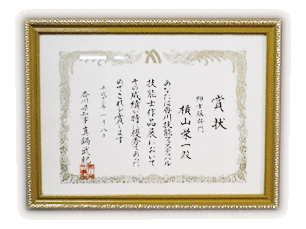 賞状
紳士服部門
横山榮一殿
あなたは香川技能フェスティバル
技能士作品展において
その成績が特に優秀であった
のでこれを賞します
平成 年一月 八日
香川県知事 真鍋武紀